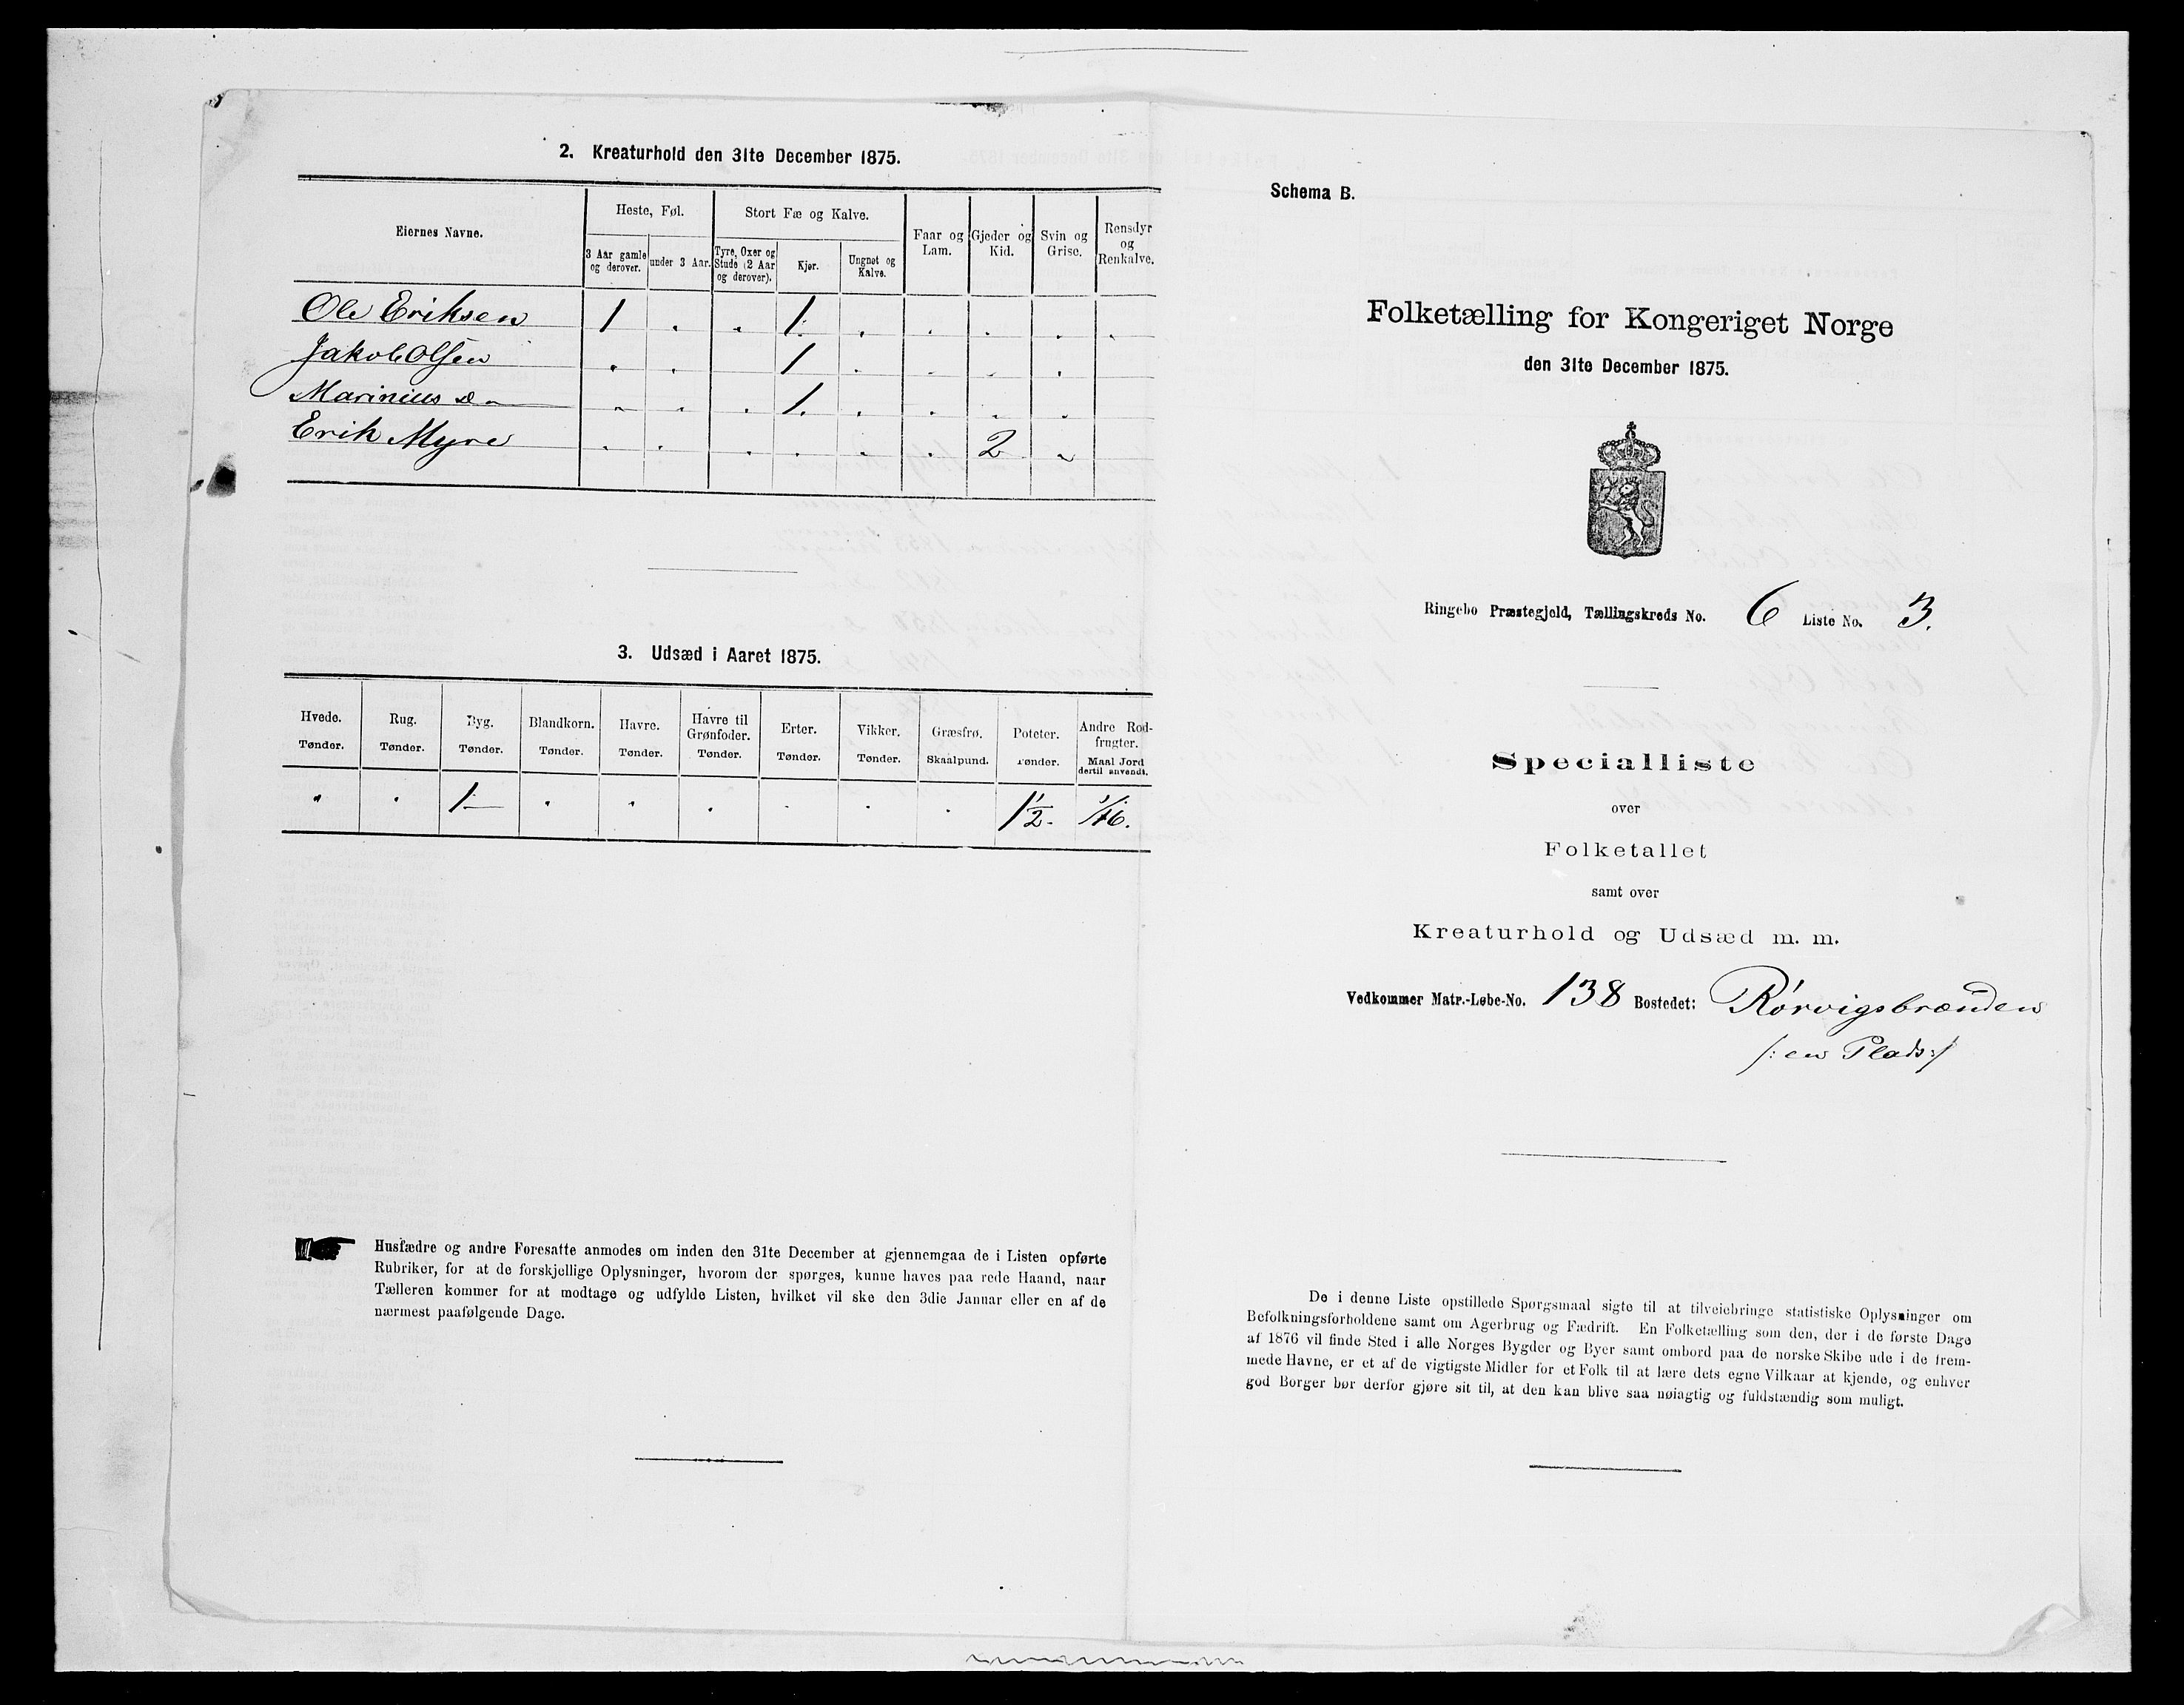 2. Kreaturhold den 31te December 1875.
Eiernes Navne.
Heste, Føl.
Stort Fæ og Kalve.
Faar og Lam.
Gjeder og Kid.
Svin og Grise.
Rensdyr og Renkalve.
3 Aar gamle og derover.
under 3 Aar.
Tyre, Oxer og Stude (2 Aar og derover).
Kjør.
Ungnøt og Kalve.
Ole Eriksen 1 . . 1. . . . . .
Jakob Olsen . . 1 . . . .
Marinius do . . . 1. . . . .
Erik Myre . . . . . . 2 .
3. Udsæd i Aaret 1875.
Hvede. Tønder.
Rug. Tønder.
Byg. Tønder.
Blandkorn. Tønder.
Havre. Tønder.
Havre til Grønfoder. Tønder.
Erter. Tønder.
Vikker. Tønder.
Græsfrø. Skaalpund.
Poteter. Tønder.
Andre Rodfrugter. Maal Jord dertil anvendt.
" . 1 . . . . . . 1½. 1/16.
Husfædre og andre Foresatte anmodes om inden den 31te December at gjennemgaa de i Listen opførte
Rubriker, for at de forskjellige Oplysninger, hvorom der spørges, kunne haves paa rede Haand, naar
Tælleren kommer for at modtage og udfylde Listen, hvilket vil ske den 3die Januar eller en af de
nærmest paafølgende Dage.
Schema B.
Folketælling for Kongeriget Norge
den 31te December 1875.
Ringebo Præstegjeld, Tællingskreds No. 6 Liste No. 3.
Specialliste
over
Folketallet
samt over
Kreaturhold og Udsæd m. m.
Vedkommer Matr.-Løbe-No. 138 Bostedet: Rørvigsbrænden
/: en Plads :/
De i denne Liste opstillede Spørgsmaal sigte til at tilveiebringe statistiske Oplysninger om
Befolkningsforholdene samt om Agerbrug og Fædrift. En Folketælling som den, der i de første Dage
af 1876 vil finde Sted i alle Norges Bygder og Byer samt ombord paa de norske Skibe ude i de frem-
mede Havne, er et af de vigtigste Midler for et Folk til at lære dets egne Vilkaar at kjende, og enhver
god Borger bør derfor gjøre sit til, at den kan blive saa nøiagtig og fuldstændig som muligt.